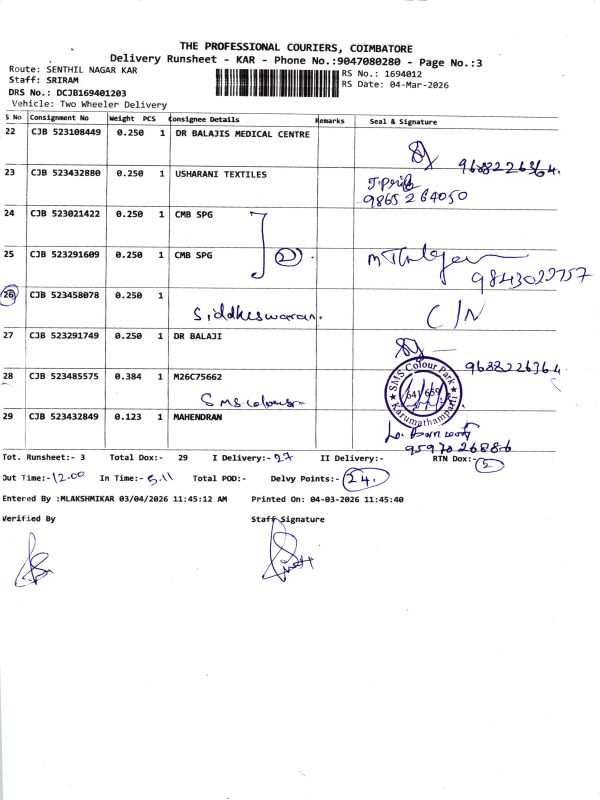 THE PROFESSIONAL COURIERS, COIMBATORE
Delivery Runsheet - KAR - Phone No.:9047080280 - Page No.:3
Route: SENTHIL NAGAR KAR
RS No.: 1694012
Staff: SRIRAM
RS Date: 04-Mar-2026
DRS No.: DCJB169401203
Vehicle: Two Wheeler Delivery
S No Consignment No Weight PCS Consignee Details Remarks Seal & Signature
22 CJB 523108449 0.250 1 DR BALAJIS MEDICAL CENTRE
9688226364.
23 CJB 523432880 0.250 1 USHARANI TEXTILES
9865264050
24 CJB 523021422 0.250 1 CMB SPG
25 CJB 523291609 0.250 1 CMB SPG
9843022757
26 CJB 523458078 0.250 1
Siddheswaran. C/N
27 CJB 523291749 0.250 1 DR BALAJI
9688226364
28 CJB 523485575 0.384 1 M26C75662
SMS Colours
SMS Colour Park
641 659
Karumathampatti
29 CJB 523432849 0.123 1 MAHENDRAN
9597026886
Tot. Runsheet:- 3 Total Dox:- 29 I Delivery:- 27 II Delivery:- RTN Dox:- 2
Out Time:- 12.00 In Time:- 5.11 Total POD:- Delvy Points:- 24.
Entered By :MLAKSHMIKAR 03/04/2026 11:45:12 AM Printed On: 04-03-2026 11:45:40
Verified By Staff Signature